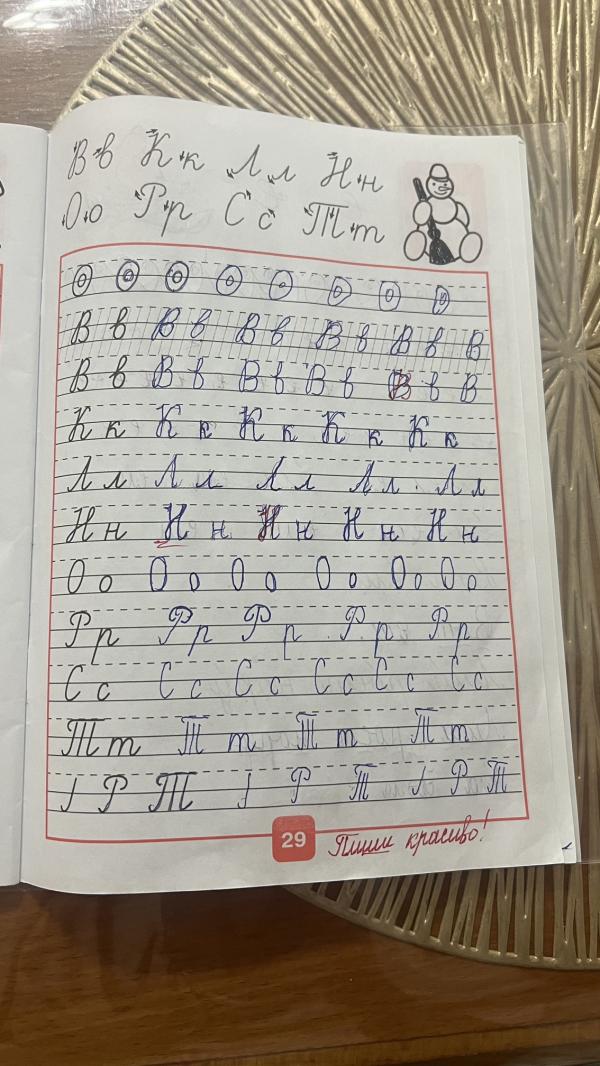 Вв Кк Лл Нн
Оо Рр Сс Тт
В в В в В в В в В в В
В в В в В в В в В в В
К к К к К к К к К к
Л л Л л Л л Л л Л л
Н н Н н Н н Н н Н н
О о О о О о О о О о О о
Р р Р р Р р Р р Р р
С с С с С с С с С с С с
Т т Т т Т т Т т
Р Т Р Т Р Т
29 Пиши красиво!